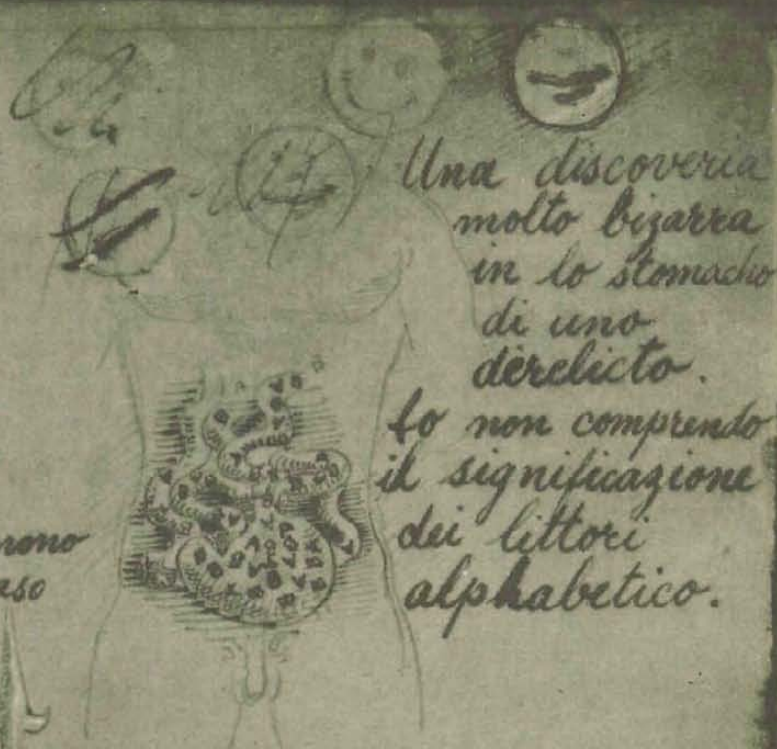 Una discoveria
molto bizarra
in lo stomacho
di uno
derelicto.
Io non comprendo
il significazione
dei littori
alphabetico.